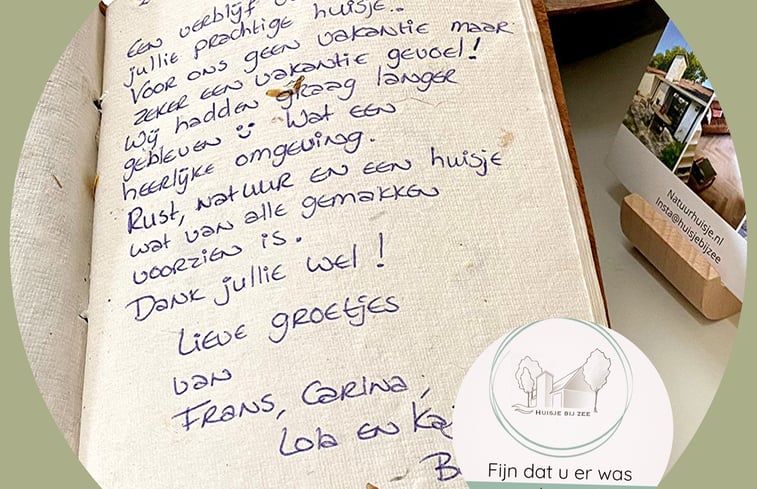 Een verblijf
jullie prachtige huisje..
Voor ons geen vakantie maar
zeker een vakantie gevoel!
Wij hadden graag langer
gebleven :) Wat een
heerlijke omgeving.
Rust, natuur en een huisje
wat van alle gemakken
voorzien is.
Dank jullie wel!
Lieve groetjes
van
Frans, Carina,
Lola en
Natuurhuisje.nl
Insta@huisjebijzee
HUISJE BIJ ZEE
Fijn dat u er was